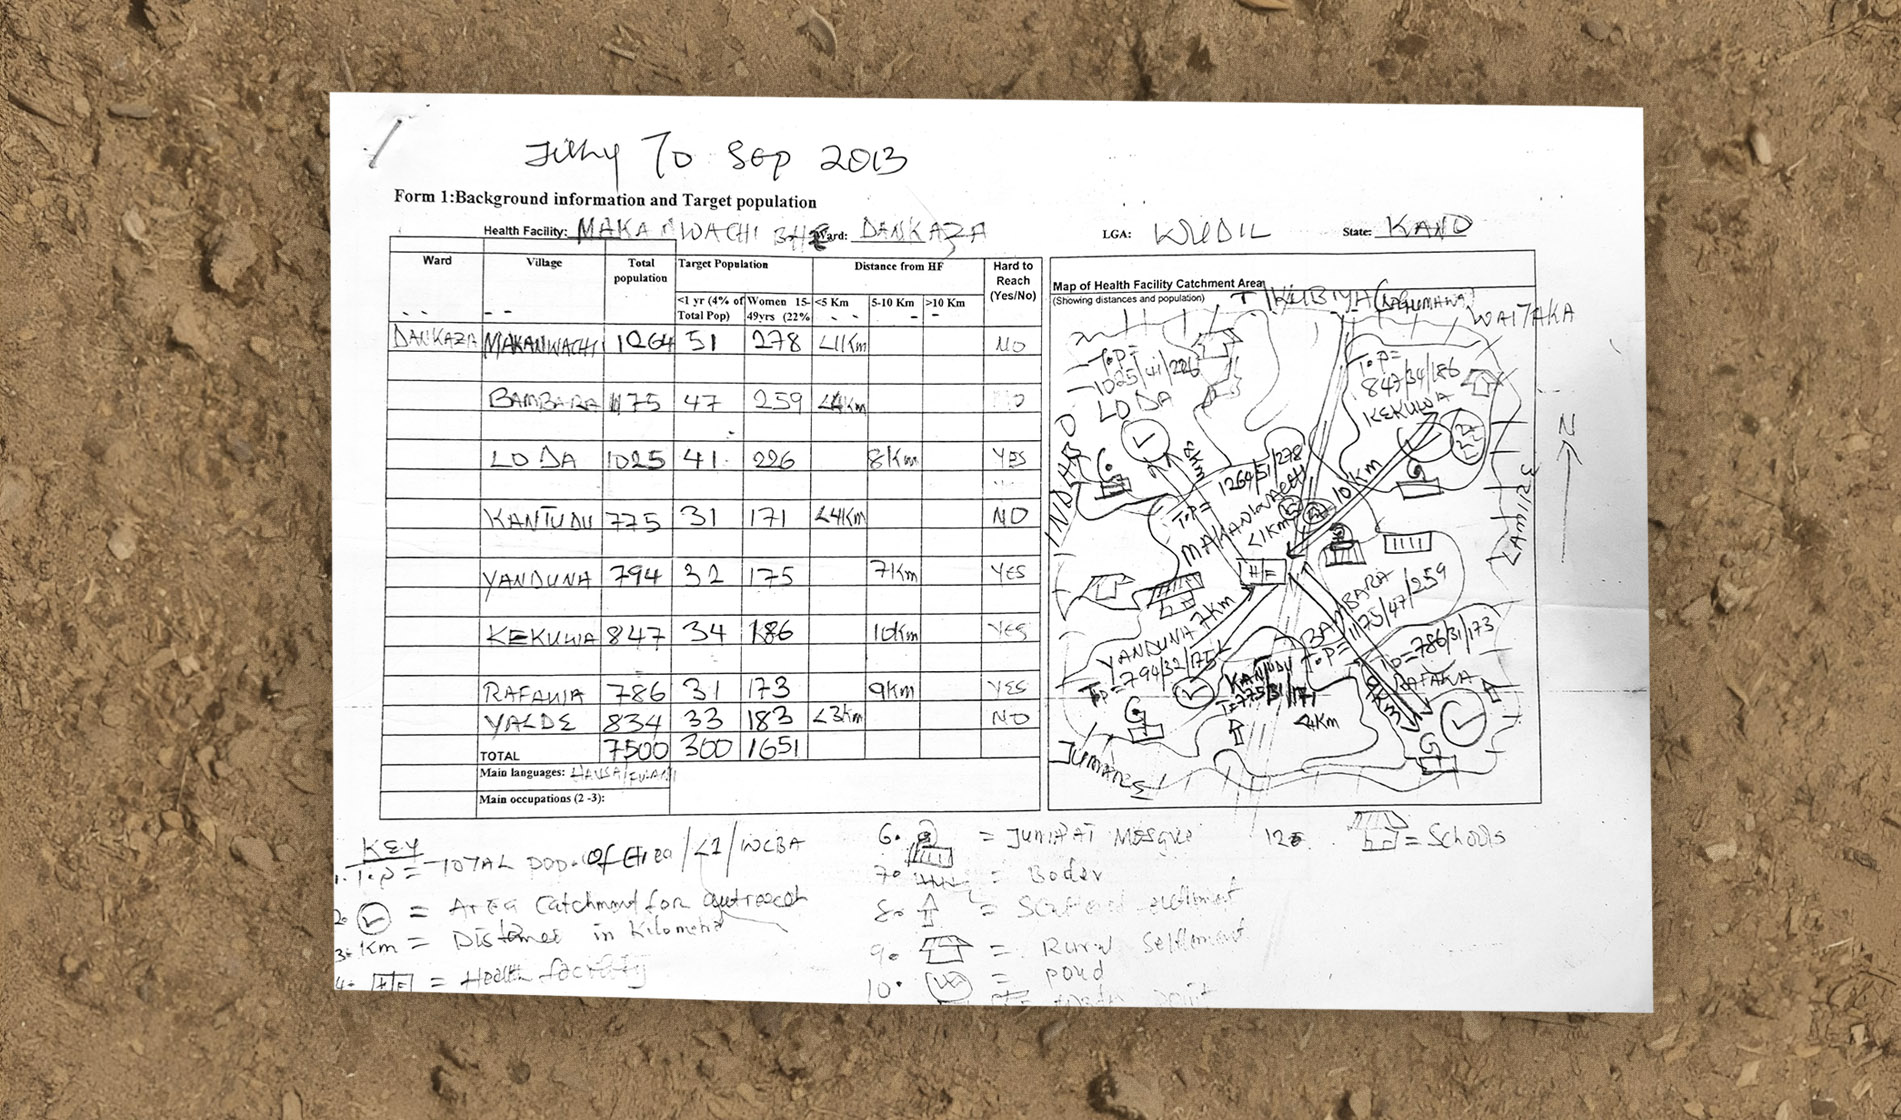 July To Sep 2013
Form 1:Background information and Target population
Health Facility: MAKANWACHI Ward: DANKAZA LGA: WUDIL State: KANO
Ward Village Total population Target Population Distance from HF Hard to Reach (Yes/No)
<1 yr (4% of Total Pop) Women 15-49yrs (22% <5 Km 5-10 Km >10 Km
DANKAZA MAKANWACHI 1264 51 278 <1Km NO
BAMBARA 1175 47 259 <4Km NO
LODA 1025 41 226 8Km YES
KANTUDU 775 31 171 <4Km NO
YANDUNA 794 32 175 7Km YES
KEKUWA 847 34 186 10Km YES
RAFAWA 786 31 173 9Km YES
YALDE 834 33 183 <3Km NO
TOTAL 7500 300 1651
Main languages: HAUSA/FULANI
Main occupations (2 -3):
Map of Health Facility Catchment Area
(Showing distances and population)
KUBIYA
WAITAKA
T.P=
1025/41/226
LODA
8Km
T.P=
847/34/186
KEKUWA
10Km
N
T.P=
1264/51/278
MAKANWACHI
<1Km
H/F
BAMBARA
T.P=1175/47/259
YANDUNA 7Km
T.P=794/32/175
KANTUDU
T.P=775/31/171
4Km
T.P=786/31/173
RAFAWA
9Km
KEY
1. T.P = TOTAL POP. Of Area /<1/WCBA
2. = Area Catchment for outreach
3. Km = Distance in Kilometre
4. H/F = Health facility
6. = JUMAAT MOSQUE
7. = Boder
8. = Scattered settlment
9. = Rural Settlment
10. = pond
12. = Schools